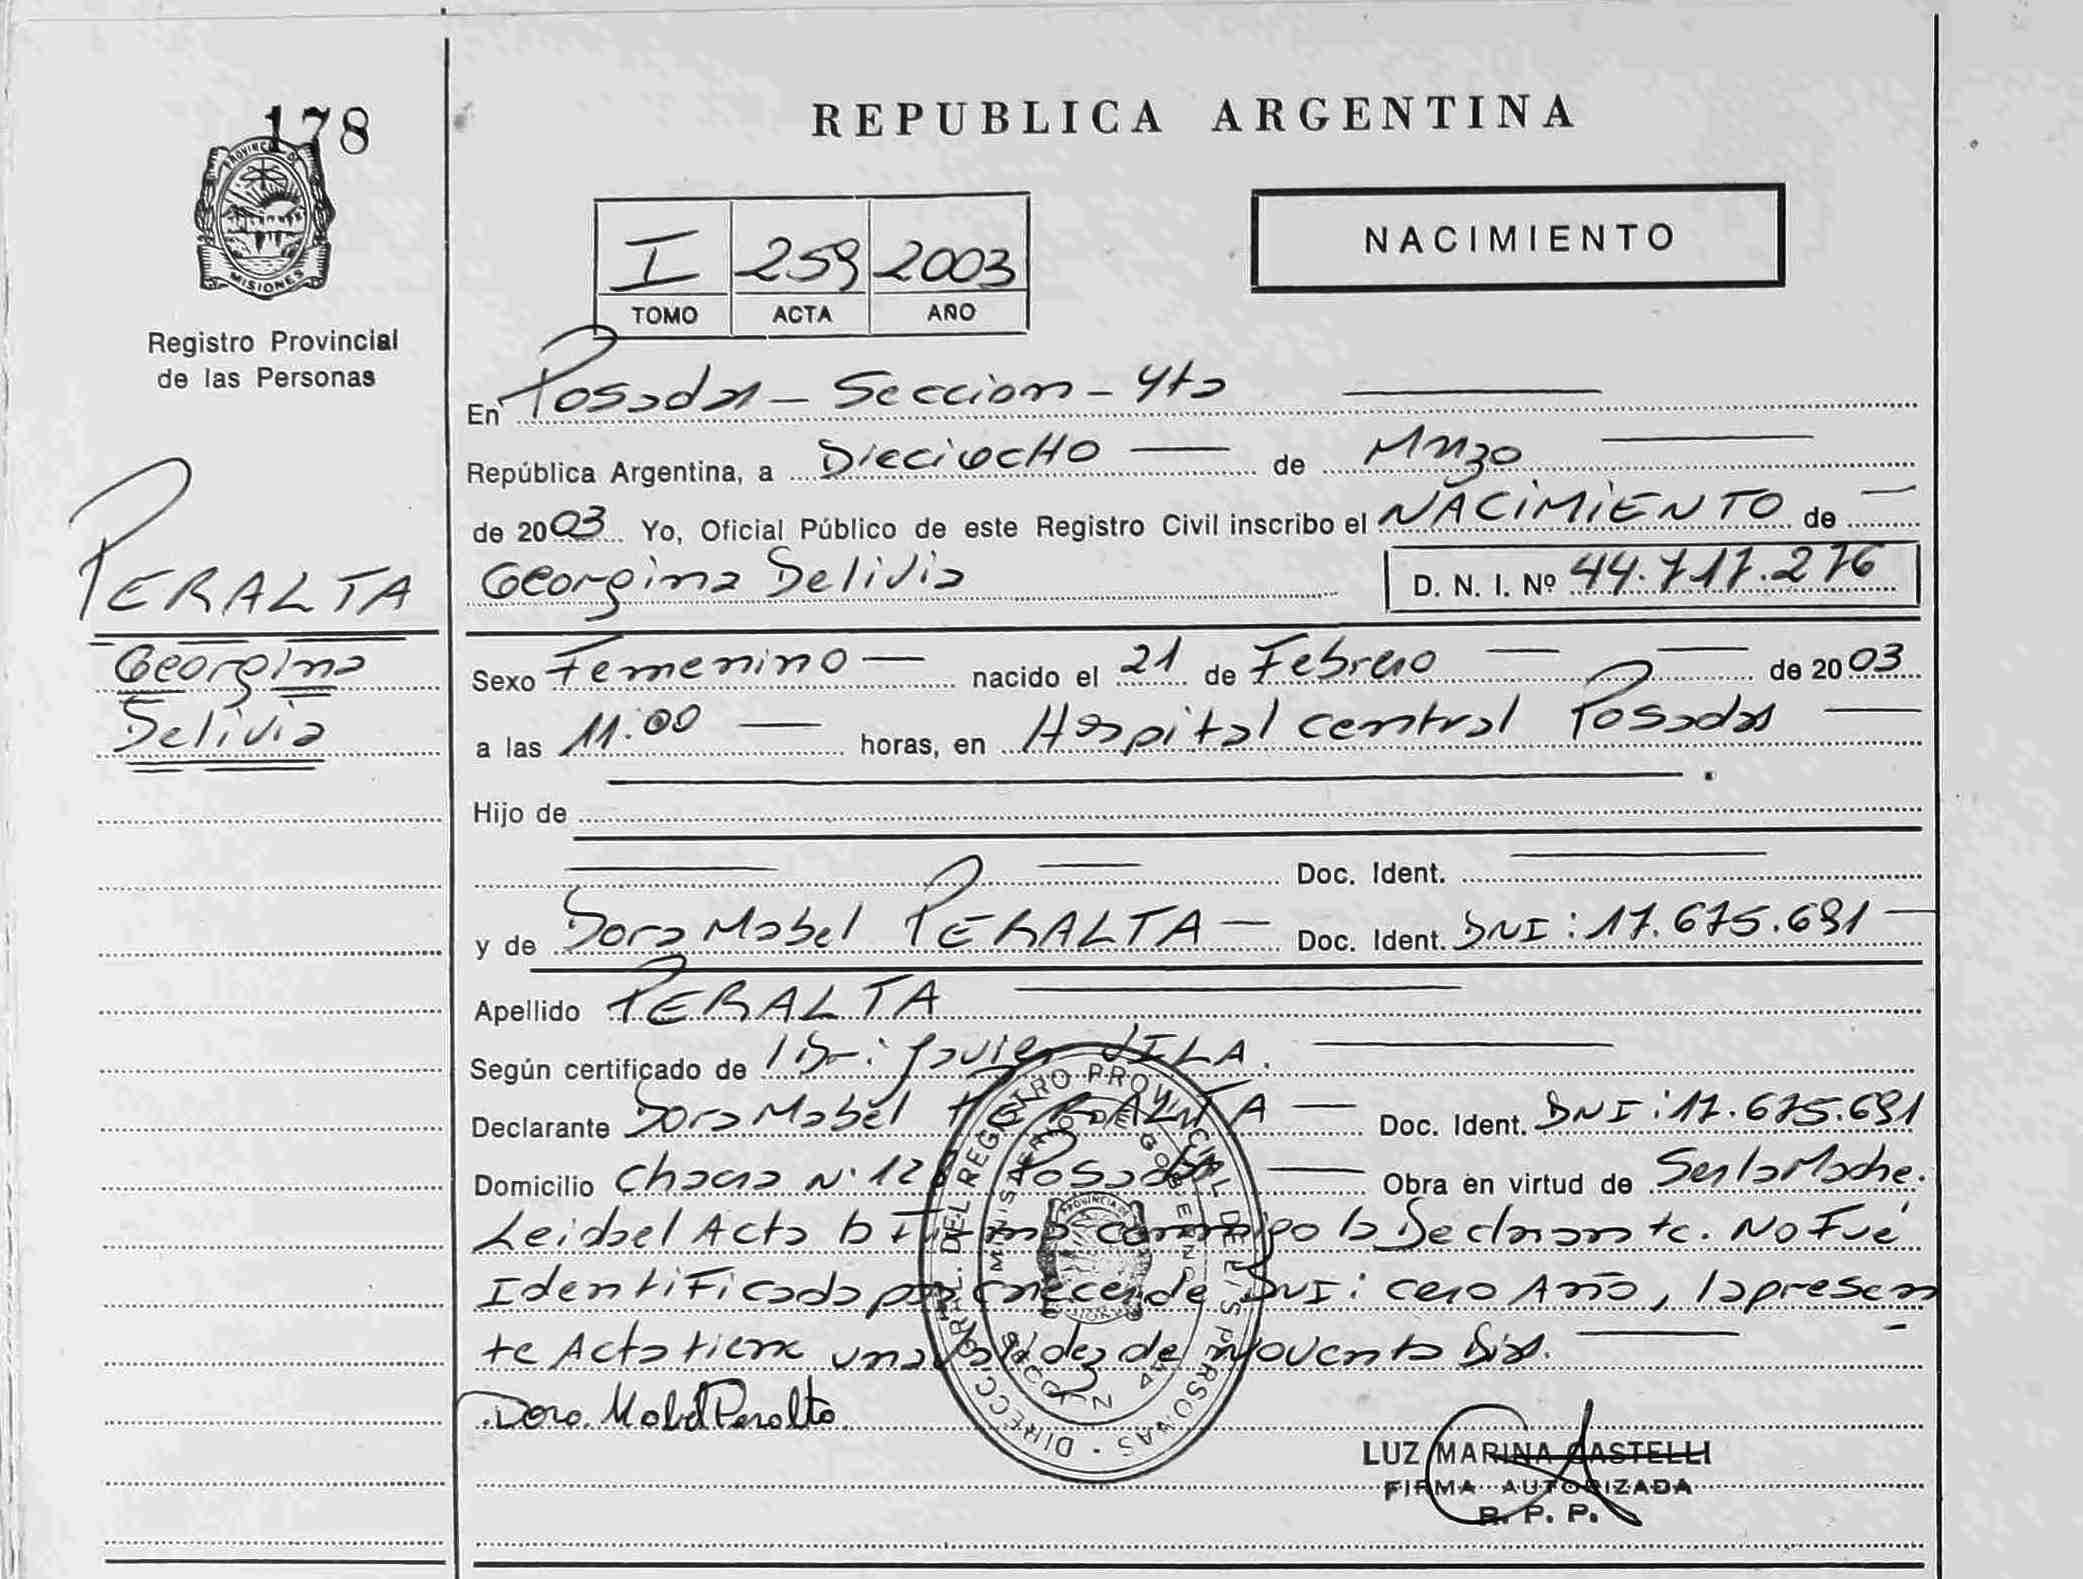 178
PROVINCIA DE
MISIONES
Registro Provincial
de las Personas
PERALTA
Georgina
Delivia
REPUBLICA ARGENTINA
I 259 2003
TOMO ACTA AÑO
NACIMIENTO
En Posadas - Seccion - 4ta
República Argentina, a DieciocHo de Marzo
de 2003 Yo, Oficial Público de este Registro Civil inscribo el NACIMIENTO de
Georgina Delivia D. N. I. Nº 44.717.276
Sexo Femenino nacido el 21 de Febrero de 2003
a las 11:00 horas, en Hospital central Posadas
Hijo de
Doc. Ident.
y de Dora Mabel PERALTA Doc. Ident. DNI: 17.675.691
Apellido PERALTA
Según certificado de Dr: Javier VILA.
Declarante Dora Mabel PERALTA Doc. Ident. DNI: 17.675.691
Domicilio Chacra Nº 12 Posadas Obra en virtud de Ser la Madre.
Leida el Acta la Firma conmigo la Declarante. No Fué
Identificada por carecer de DNI: cero Año, la presen
te Acta tiene una validez de noventa Dias.
Dora Mabel Peralta
DIRECCION GRAL. DEL REGISTRO PROVINCIAL DE LAS PERSONAS
MINISTERIO DE GOBIERNO
LUZ MARINA CASTELLI
FIRMA AUTORIZADA
R. P. P.